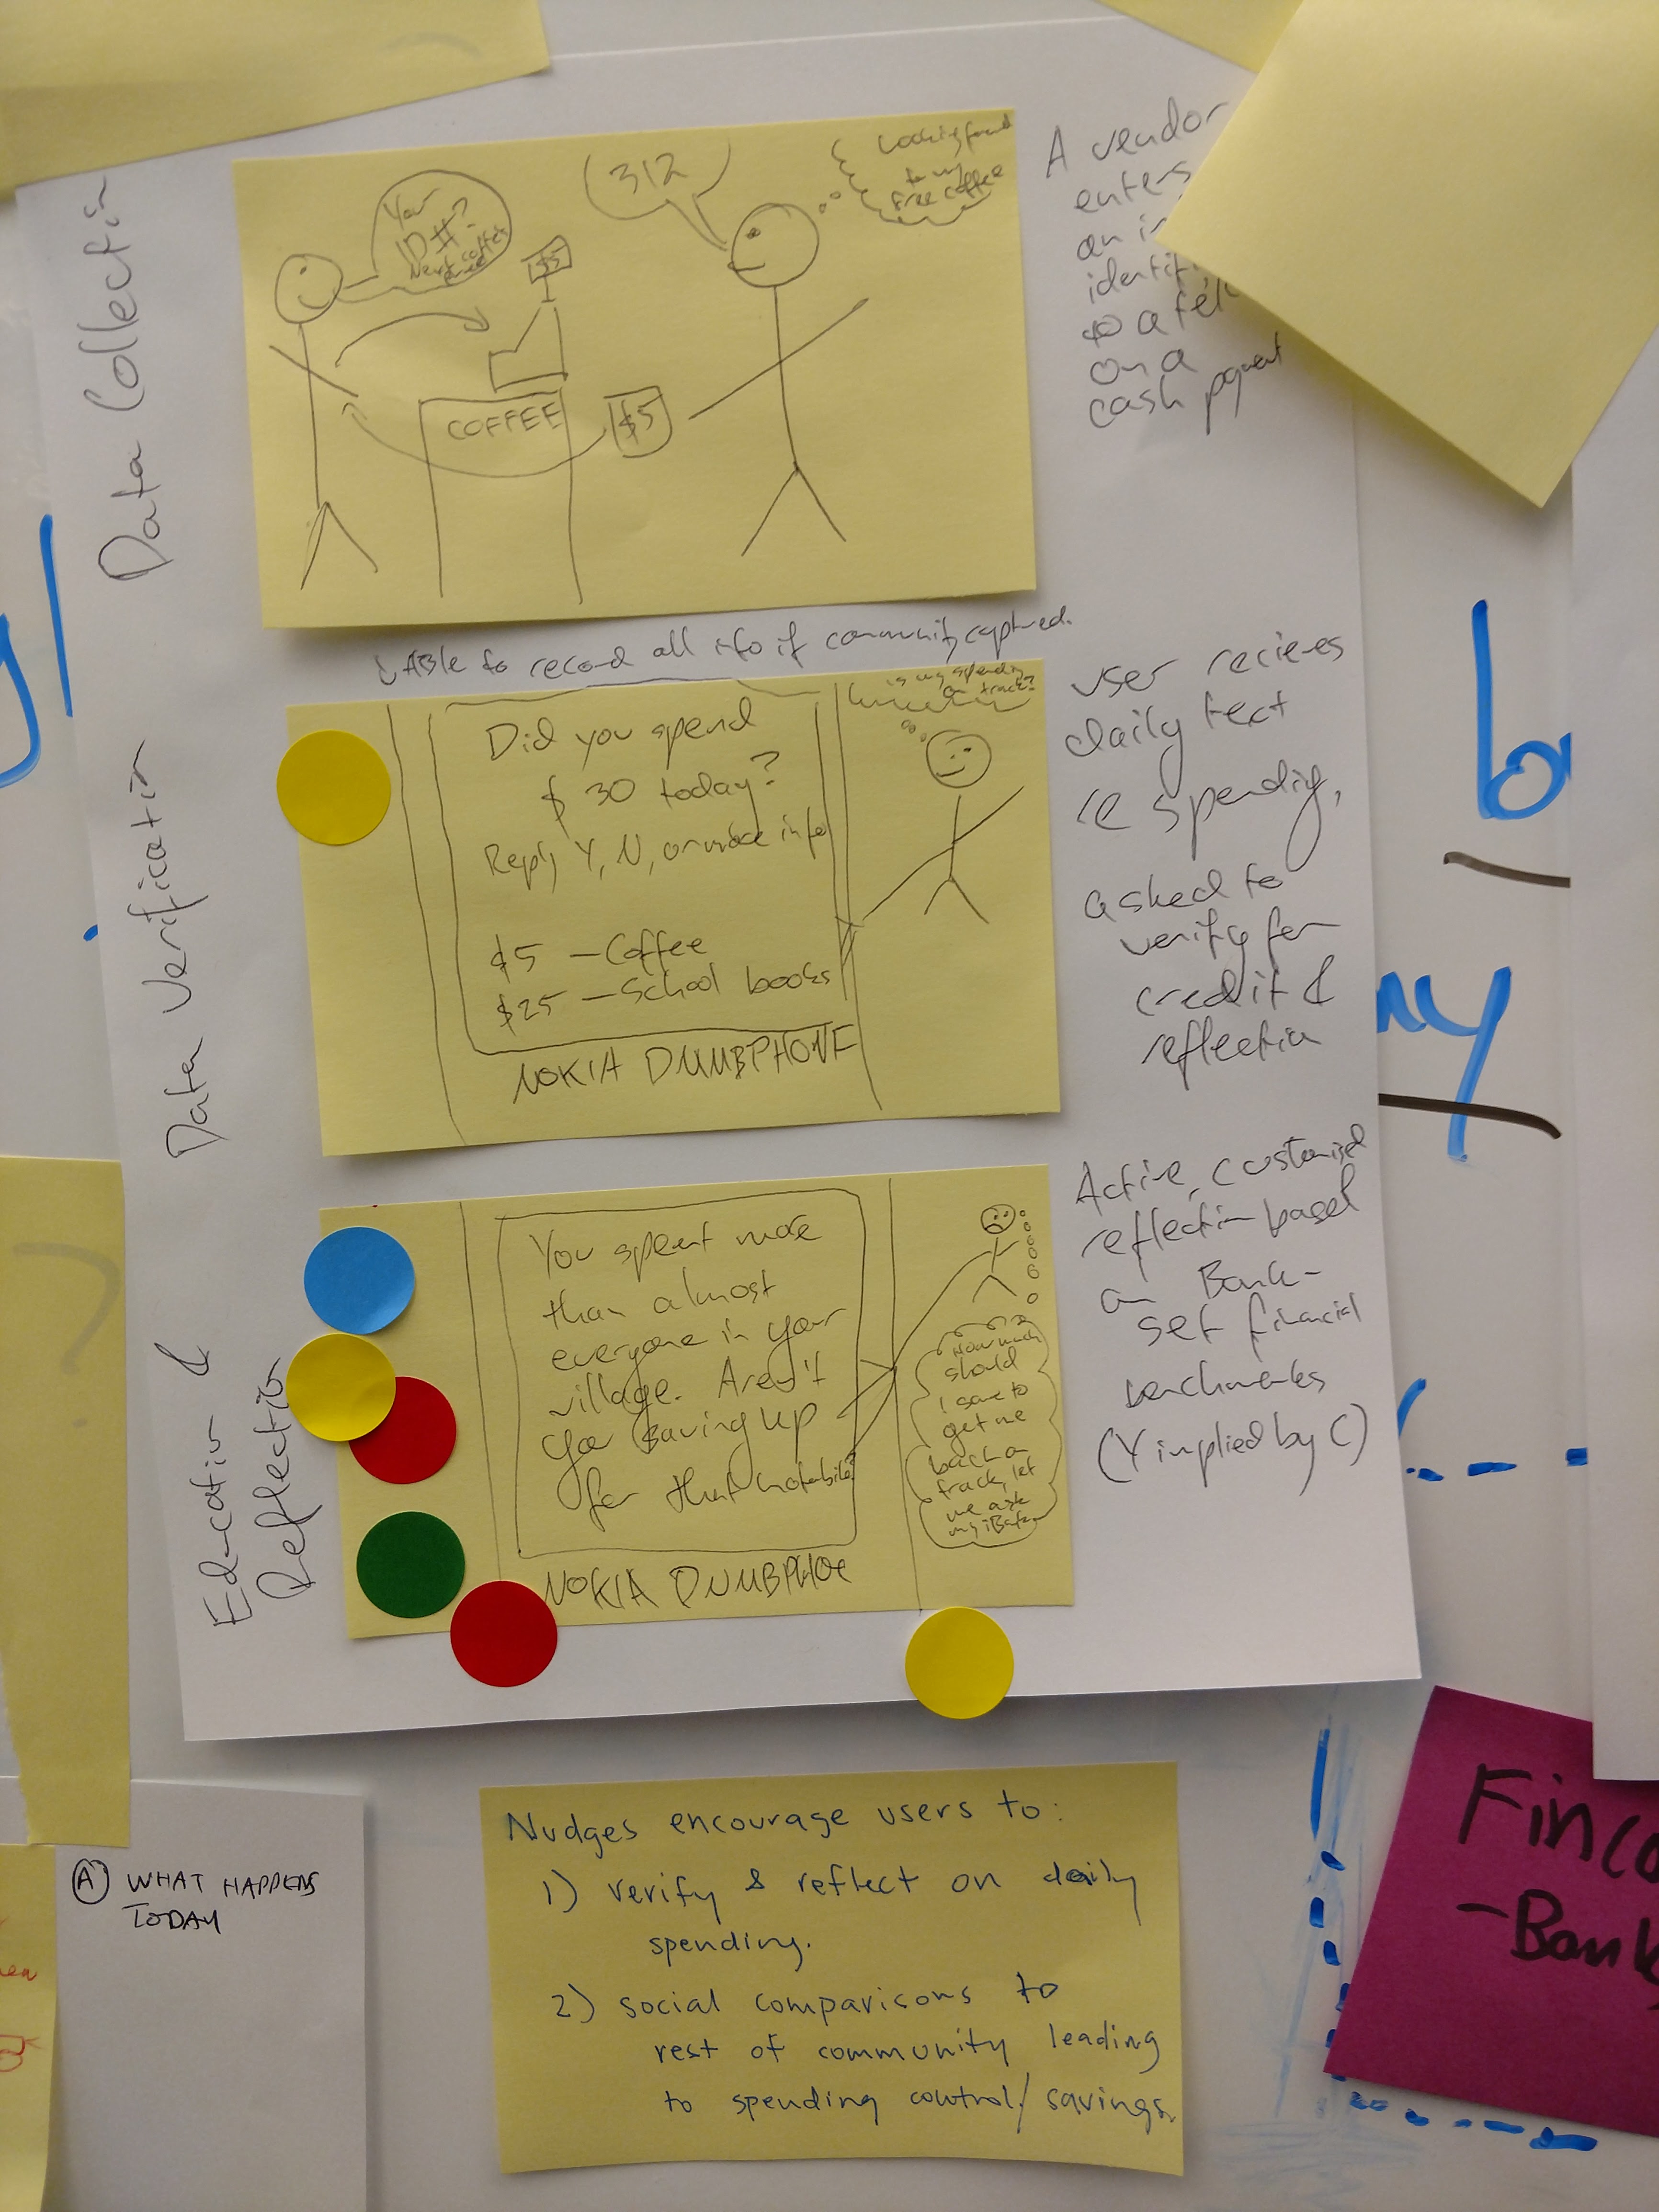 Data Collection
Your
ID#?
Next coffee
free
312
Looking forward
to my
free coffee
$5
COFFEE
$5
A vendor
enters
an
identif
to a
on a
cash payment
Able to record all info if community captured.
Data Verification
Did you spend
$30 today?
Reply Y, N, or more info
$5 – Coffee
$25 – School books
NOKIA DUMBPHONE
is my spending
on track?
user recieves
daily text
re spending,
asked to
verify for
credit &
reflection
Education &
Reflection
You spent more
than almost
everyone in your
village. Aren't
you saving up
for that motorbike?
NOKIA DUMBPHOE
How much
should
I save to
get me
back on
track, let
me ask
my
Active, customised
reflection based
on Bank-
set financial
benchmarks
(Y implied by C)
Nudges encourage users to:
1) verify & reflect on daily
spending.
2) social comparisons to
rest of community leading
to spending control/savings.
A WHAT HAPPENS
TODAY
Finco
- Bank
b
ny
?